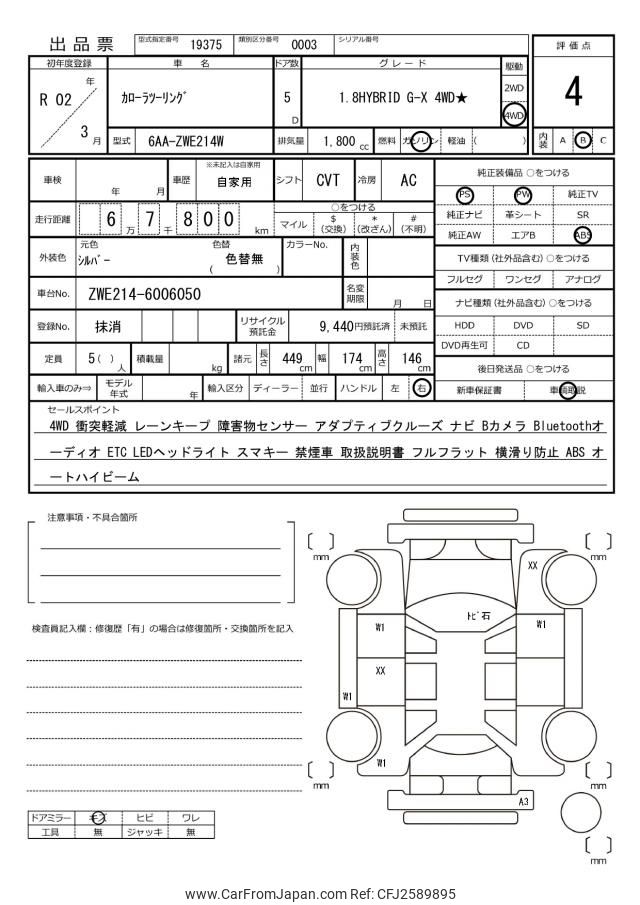 出品票
型式指定番号 19375 類別区分番号 0003 シリアル番号
評価点
4
内装 A B C
初年度登録 車名 ドア数 グレード 駆動
R 02 年 3 月
カローラツーリング 5 D 1.8HYBRID G-X 4WD★ 2WD 4WD
型式 6AA-ZWE214W 排気量 1,800 cc 燃料 ガソリン 軽油 ( )
車検 年 月 車歴 ※未記入は自家用 自家用 シフト CVT 冷房 AC
走行距離 6 万 7 千 8 0 0 km
○をつける
マイル $(交換) *(改ざん) #(不明)
外装色 元色 シルバー 色替 ( 色替無 ) カラーNo. 内装色
車台No. ZWE214-6006050 名変期限 月 日
登録No. 抹消 リサイクル預託金 9,440円預託済 未預託
定員 5( )人 積載量 kg 諸元 長さ 449 cm 幅 174 cm 高さ 146 cm
輸入車のみ⇒ モデル年式 年 輸入区分 ディーラー 並行 ハンドル 左 右
純正装備品 ○をつける
PS PW 純正TV
純正ナビ 革シート SR
純正AW エアB ABS
TV種類(社外品含む)○をつける
フルセグ ワンセグ アナログ
ナビ種類(社外品含む)○をつける
HDD DVD SD
DVD再生可 CD
後日発送品 ○をつける
新車保証書 車輌取説
セールスポイント
4WD 衝突軽減 レーンキープ 障害物センサー アダプティブクルーズ ナビ Bカメラ Bluetoothオ
ーディオ ETC LEDヘッドライト スマキー 禁煙車 取扱説明書 フルフラット 横滑り防止 ABS オ
ートハイビーム
注意事項・不具合箇所
検査員記入欄:修復歴「有」の場合は修復箇所・交換箇所を記入
[ ] mm [ ] mm
XX
トビ石
W1 W1
XX
W1
W1
[ ] mm [ ] mm
A3
[ ] mm
ドアミラー キズ ヒビ ワレ
工具 無 ジャッキ 無
www.CarFromJapan.com Ref: CFJ2589895